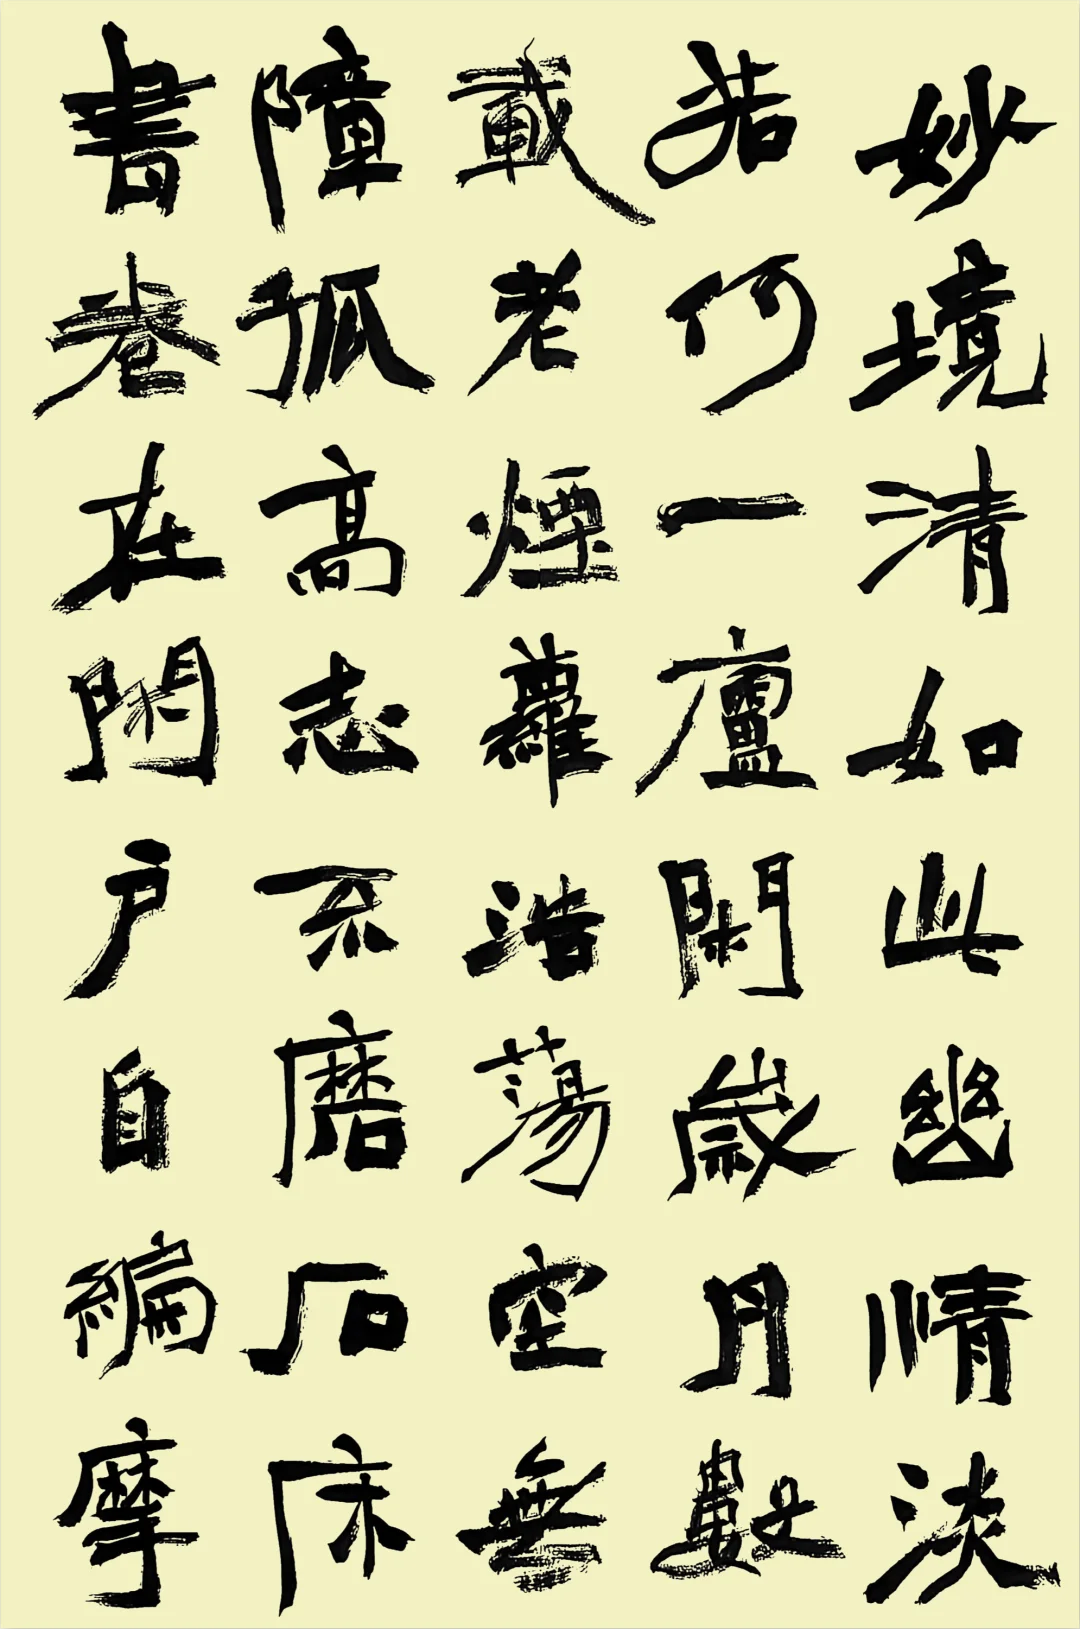 妙境清如此幽情淡
若何一廬閑歲月數
載老煙蘿浩蕩空無
障孤高志不磨石床
書卷在閑戶自編摩